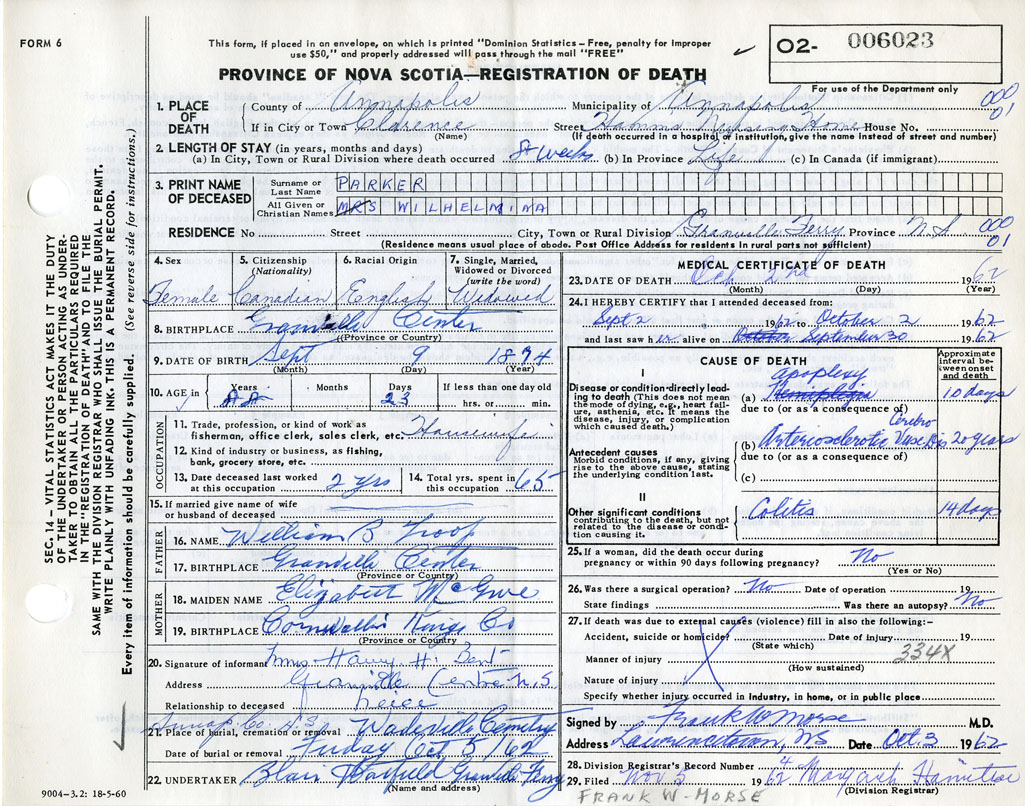 FORM 6
This form, if placed in an envelope, on which is printed "Dominion Statistics – Free, penalty for improper
use $50," and properly addressed will pass through the mail "FREE"
✓
O2- 006023
For use of the Department only
PROVINCE OF NOVA SCOTIA—REGISTRATION OF DEATH
1. PLACE OF DEATH
County of Annapolis Municipality of Annapolis 000
If in City or Town Clarence Street Hamms Nursing Home House No. 01
(Name) (If death occurred in a hospital or institution, give the name instead of street and number)
2. LENGTH OF STAY (in years, months and days)
(a) In City, Town or Rural Division where death occurred 8 weeks (b) In Province Life (c) In Canada (if immigrant)
3. PRINT NAME OF DECEASED
Surname or Last Name PARKER
All Given or Christian Names MRS WILHELMINA
RESIDENCE No Street City, Town or Rural Division Granville Ferry Province N.S. 000
(Residence means usual place of abode. Post Office Address for residents in rural parts not sufficient) 01
4. Sex 5. Citizenship (Nationality) 6. Racial Origin 7. Single, Married, Widowed or Divorced (write the word)
Female Canadian English Widowed
8. BIRTHPLACE Granville Center
(Province or Country)
9. DATE OF BIRTH Sept 9 1894
(Month) (Day) (Year)
10. AGE in Years Months Days 23 If less than one day old
hrs. or min.
OCCUPATION
11. Trade, profession, or kind of work as
fisherman, office clerk, sales clerk, etc. Housewife
12. Kind of industry or business, as fishing,
bank, grocery store, etc.
13. Date deceased last worked
at this occupation 2 yrs
14. Total yrs. spent in
this occupation 65
15. If married give name of wife
or husband of deceased
FATHER
16. NAME William B Troop
17. BIRTHPLACE Granville Center
(Province or Country)
MOTHER
18. MAIDEN NAME Elizabeth
19. BIRTHPLACE Cornwallis Kings Co
(Province or Country)
20. Signature of informant Mrs Harry H. Bent
Address Granville Centre N.S.
Relationship to deceased neice
Annap. Co. 43
21. Place of burial, cremation or removal Wadeville Cemetry
Date of burial or removal Friday Oct 5/62
22. UNDERTAKER Blair Granville Ferry
(Name and address)
9004-3.2: 18-5-60
MEDICAL CERTIFICATE OF DEATH
23. DATE OF DEATH Oct 2nd 1962
(Month) (Day) (Year)
24. I HEREBY CERTIFY that I attended deceased from:
Sept 2 1962 to October 2 1962
and last saw her alive on October September 30 1962
CAUSE OF DEATH
Approximate interval between onset and death
I
Disease or condition directly leading to death (This does not mean
the mode of dying, e.g., heart failure, asthenia, etc. It means the
disease, injury, or complication
which caused death.)
apoplexy
(a) Hemiplegia 10 days
due to (or as a consequence of)
Cerebro
(b) Arteriosclerotic Vasc Dis 20 years
due to (or as a consequence of)
(c)
Antecedent causes
Morbid conditions, if any, giving
rise to the above cause, stating
the underlying condition last.
II
Other significant conditions
contributing to the death, but not
related to the disease or condition causing it.
Colitis 14 days
25. If a woman, did the death occur during
pregnancy or within 90 days following pregnancy? No
(Yes or No)
26. Was there a surgical operation? No Date of operation 19
State findings Was there an autopsy? No
27. If death was due to external causes (violence) fill in also the following:–
Accident, suicide or homicide? Date of injury 19
(State which) 334X
Manner of injury
(How sustained)
Nature of injury
Specify whether injury occurred in industry, in home, or in public place
Signed by Frank W Morse M.D.
Address Lawrencetown, NS Date Oct. 3 1962
28. Division Registrar's Record Number 4
29. Filed Nov 5 1962
(Division Registrar)
FRANK W. MORSE
SEC. 14 – VITAL STATISTICS ACT MAKES IT THE DUTY
OF THE UNDERTAKER OR PERSON ACTING AS UNDER-
TAKER TO OBTAIN ALL THE PARTICULARS REQUIRED
IN THE "REGISTRATION OF DEATH" AND TO FILE THE
SAME WITH THE DIVISION REGISTRAR WHO SHALL ISSUE THE BURIAL PERMIT.
WRITE PLAINLY WITH UNFADING INK. THIS IS A PERMANENT RECORD.
Every item of information should be carefully supplied. (See reverse side for instructions.)